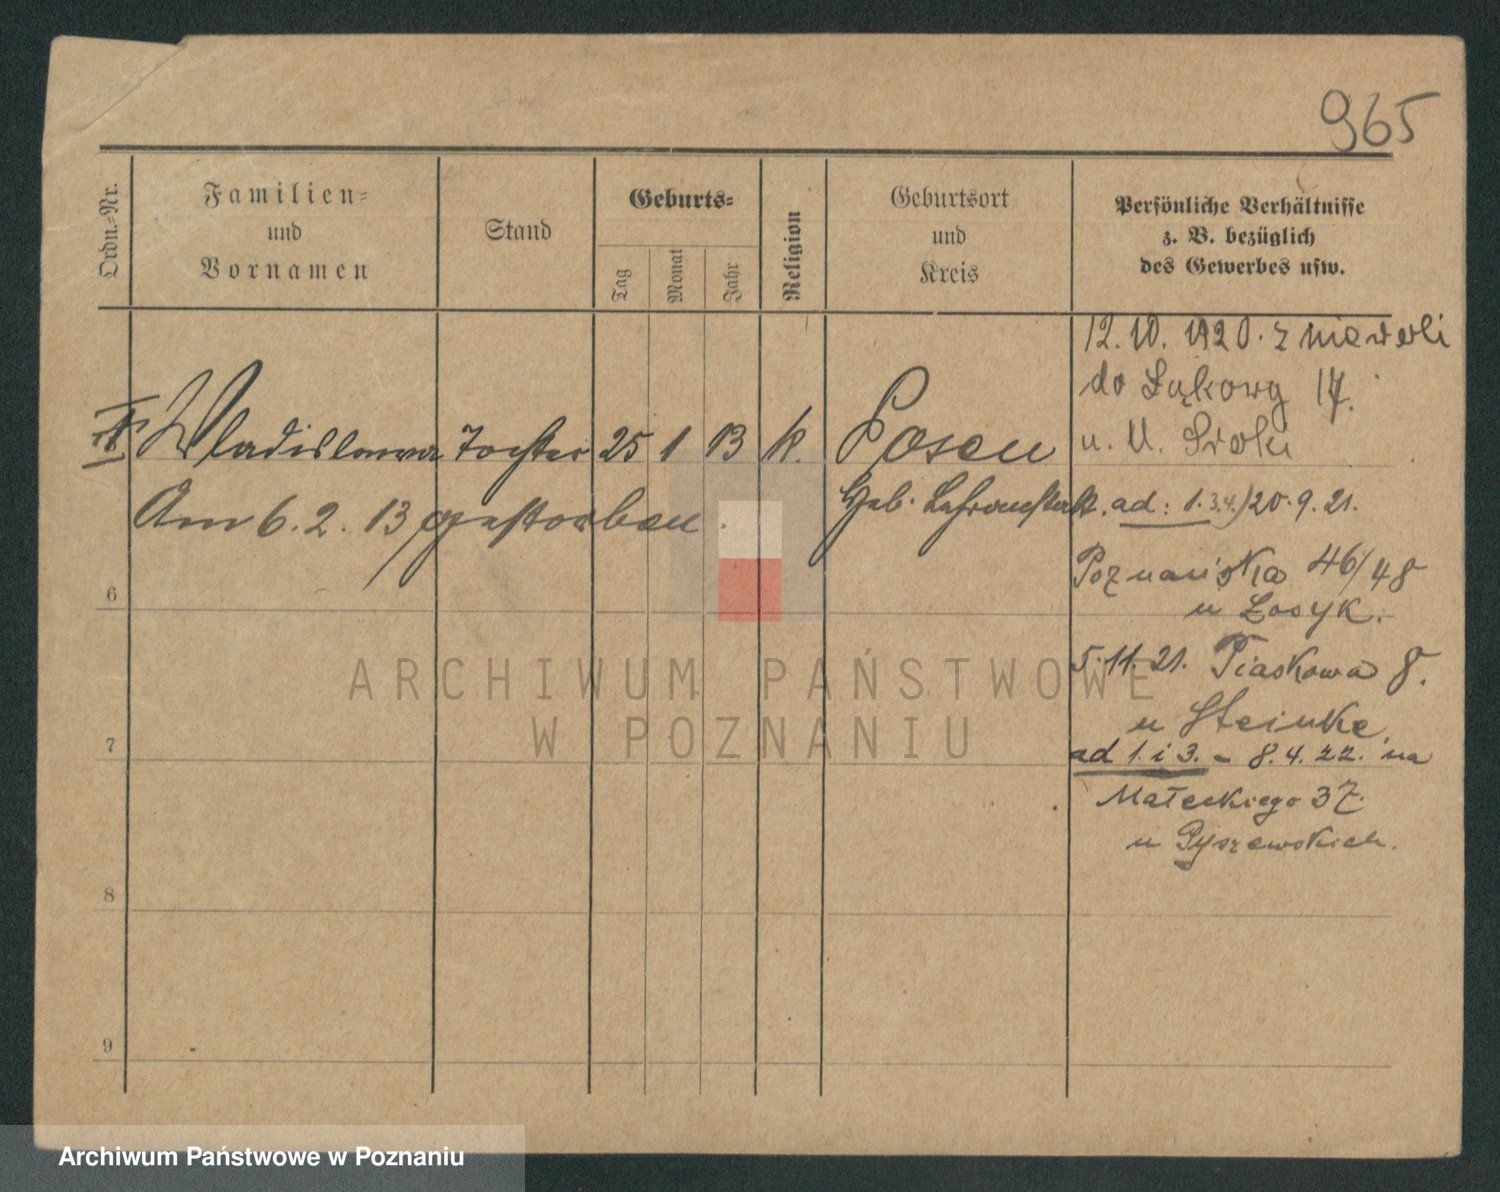 965
Ordn.-Nr.
Familien-
und
Vornamen
Stand
Geburts-
Tag
Monat
Jahr
Religion
Geburtsort
und
Kreis
Persönliche Verhältnisse
z. B. bezüglich
des Gewerbes usw.
Wladislawa Tochter 25 1 13 k. Posen
Am 6. 2. 13 gestorben.
Geb.
12. 10. 1920. z
do Łąkowa 17.
u. U.
ad: 1. 3. 4.) 20. 9. 21.
Poznańska 46/48
u Łosyk.
5. 11. 21. Piaskowa 8.
u Steinke.
ad 1. i 3. - 8. 4. 22. na
Małeckiego 37.
u Pyszewskich.
6
7
8
9
ARCHIWUM PAŃSTWOWE
W POZNANIU
Archiwum Państwowe w Poznaniu